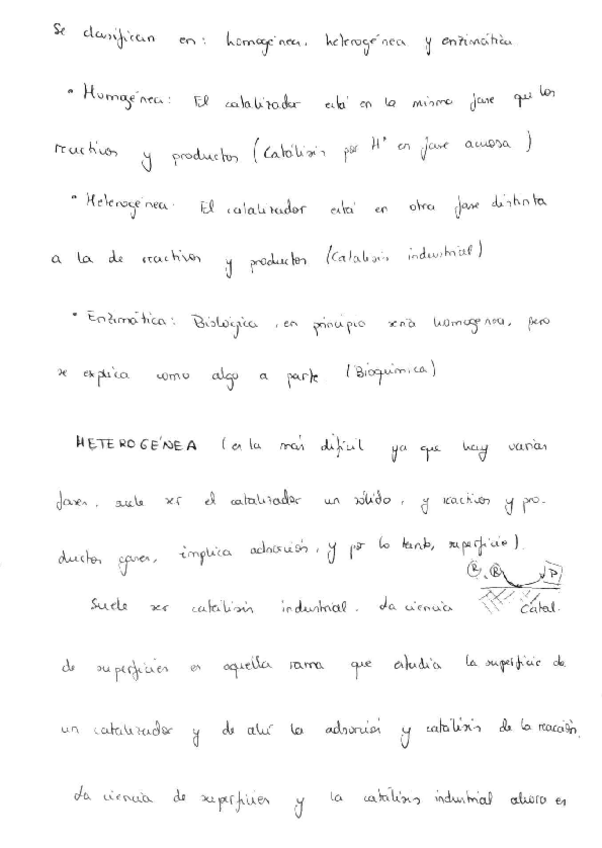 Se clasifican en: homogénea, heterogénea y enzimática.
• Homogénea: El catalizador está en la misma fase que los
reactivos y productos (Catálisis por H⁺ en fase acuosa)
• Heterogénea. El catalizador está en otra fase distinta
a la de reactivos y productos (Catalisis industrial)
• Enzimática: Biológica, en principio sería homogenea, pero
se explica como algo a parte (Bioquímica)
HETEROGÉNEA (es la más difícil ya que hay varias
fases, suele ser el catalizador un sólido, y reactivos y pro-
ductos gases, implica adsorción, y por lo tanto, superficie).
R, R P
Suele ser catálisis industrial. La ciencia Catal.
de superficies es aquella rama que estudia la superficie de
un catalizador y de ahí la adsorción y catálisis de la reacción.
La ciencia de superficies y la catálisis industrial ahora es